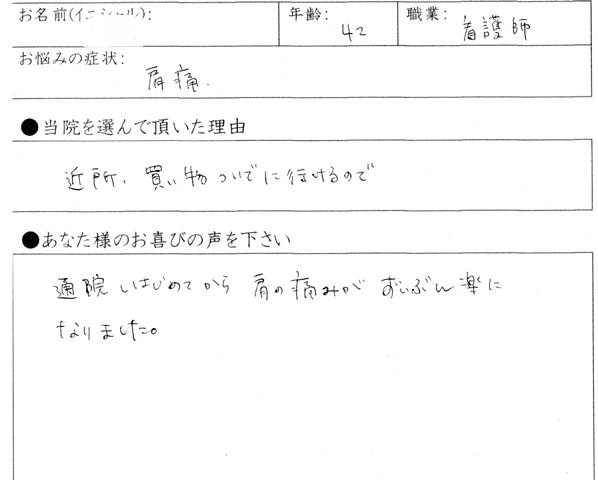 お名前(イニシャル):
年齢: 42
職業: 看護師
お悩みの症状:
肩痛.
●当院を選んで頂いた理由
近所、買い物ついでに行けるので
●あなた様のお喜びの声を下さい
通院しはじめてから 肩の痛みが ずいぶん楽に
なりました。